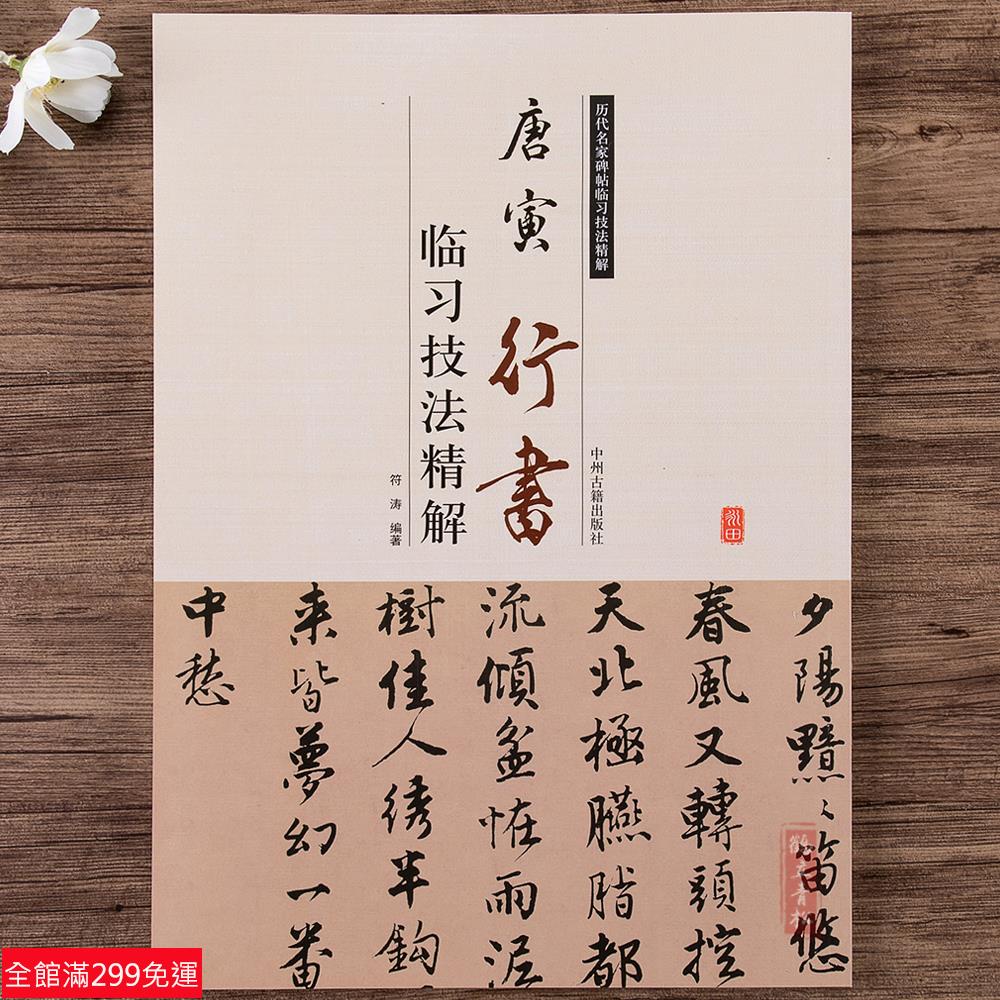 历代名家碑帖临习技法精解
唐寅行書
临习技法精解
符涛 编著
中州古籍出版社
夕陽黯〻笛悠
春風又轉頭控
天北極臙脂都
流傾盆恠雨泥
樹佳人綉半鈎
来皆夢幻一番
中愁
全館滿299免運